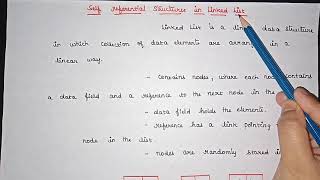 Self Referential Structures in Linked List
Linked List is a data structure
in which collection of data elements are arranged in a
linear way.
- contains nodes, where each node contains
a data field and a reference to the next node in the
- data field holds the elements.
- reference has a link pointing
node in the list.
- nodes are randomly stored in